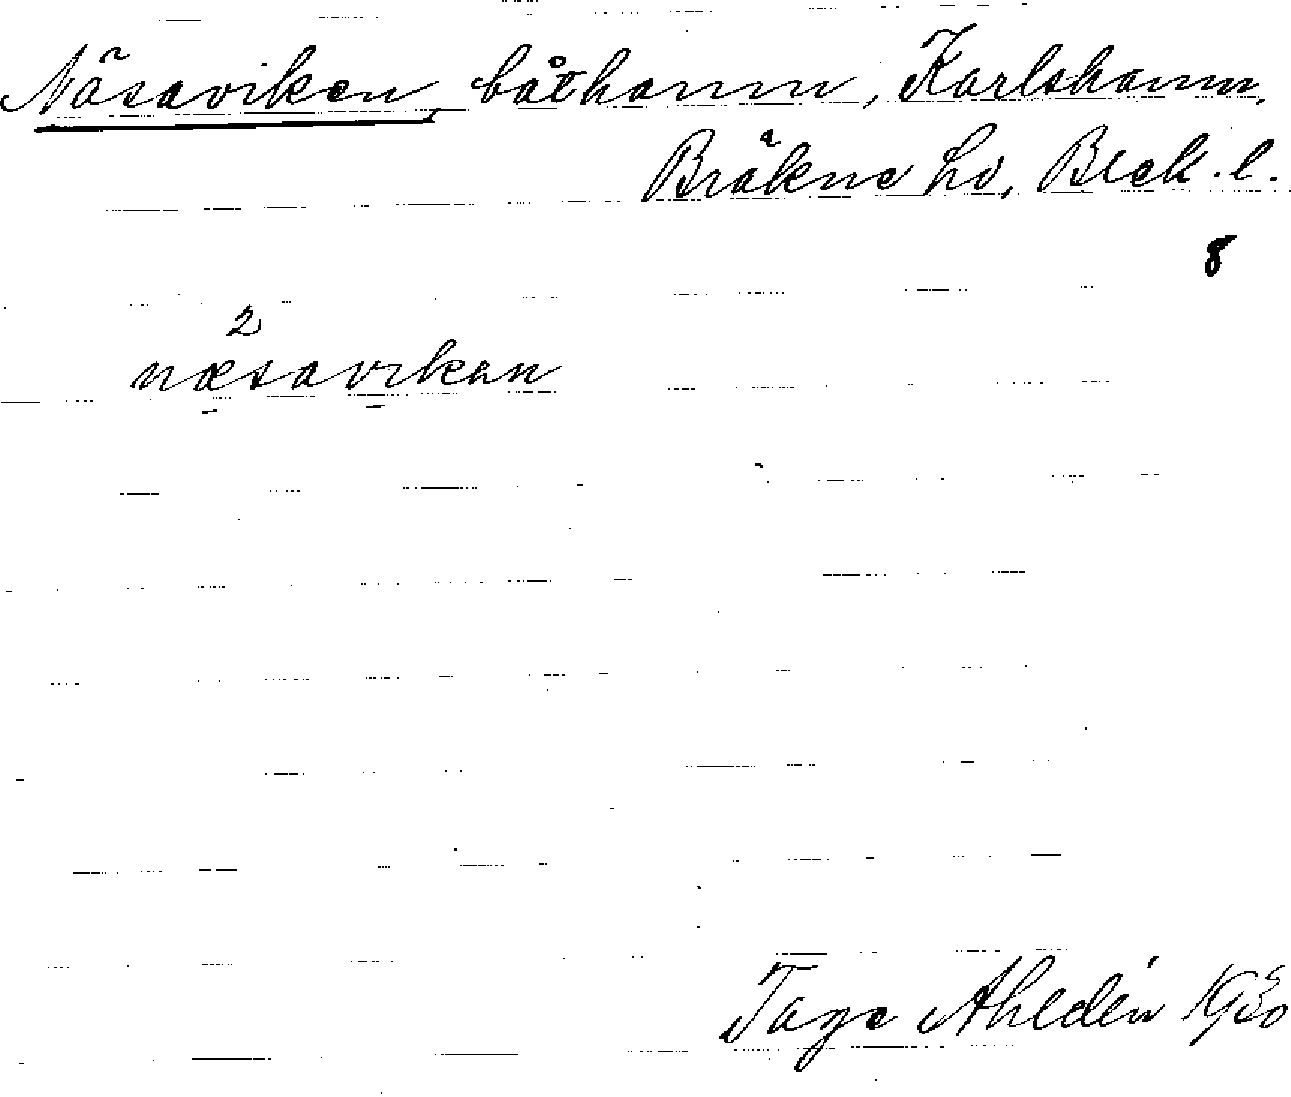 Näsaviken, båthamn, Karlshamn,
Bräkne hd, Blek. l.
8
2
næsavikən
Tage Ahldén 1930